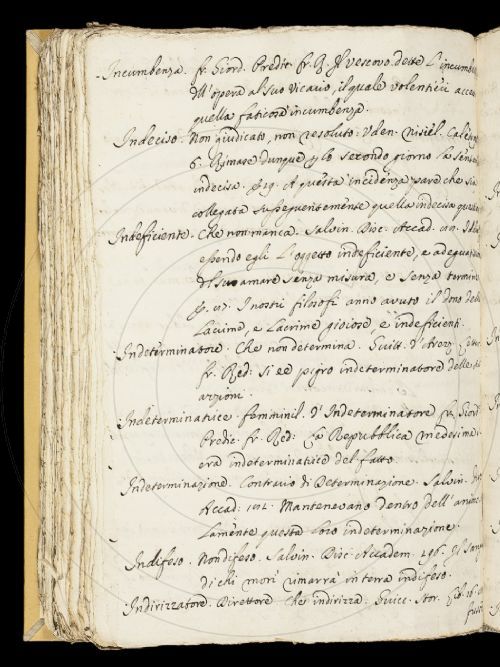 Incumbenza. fr. Giord. Predic. fr. R. Il vescovo dette l'incumben
dell'opera al suo vicario, il quale volentieri acce
quella faticosa incumbenza.
Indeciso. Non giudicato, non resoluto. Uden. Nisiel.
6. Rimase dunque p lo secondo giorno la senten
indecisa. A questa incidenza pare che sia
collegata susseguentemente quella indecisa
Indeficiente. Che non manca. Salvin. Disc. Accad.
essendo egli l'oggetto indeficiente, e adeguato
del suo amare senza misura, e senza termine
I nostri filosofi anno avuto il dono delle
Lacrime, e Lacrime gioiose, e indeficienti.
Indeterminatore. Che non determina. Guitt. d'Arezz.
fr. Red. Si è pigro indeterminatore delle
azzioni.
Indeterminatrice. femminil. d'Indeterminatore fr. Giord
Predic. fr. Red. La Repubblica medesima
era indeterminatrice del fatto.
Indeterminazione. Contrario di Determinazione. Salvin.
Accad. Mantenevano dentro dell'
Lamente questa loro indeterminazione.
Indifeso. Non difeso. Salvin. Disc. Accadem. 496.
di chi morì rimarrà in terra indifeso.
Indirizzatore. Direttore Che indirizza. Guicc. Stor. lib. 16.